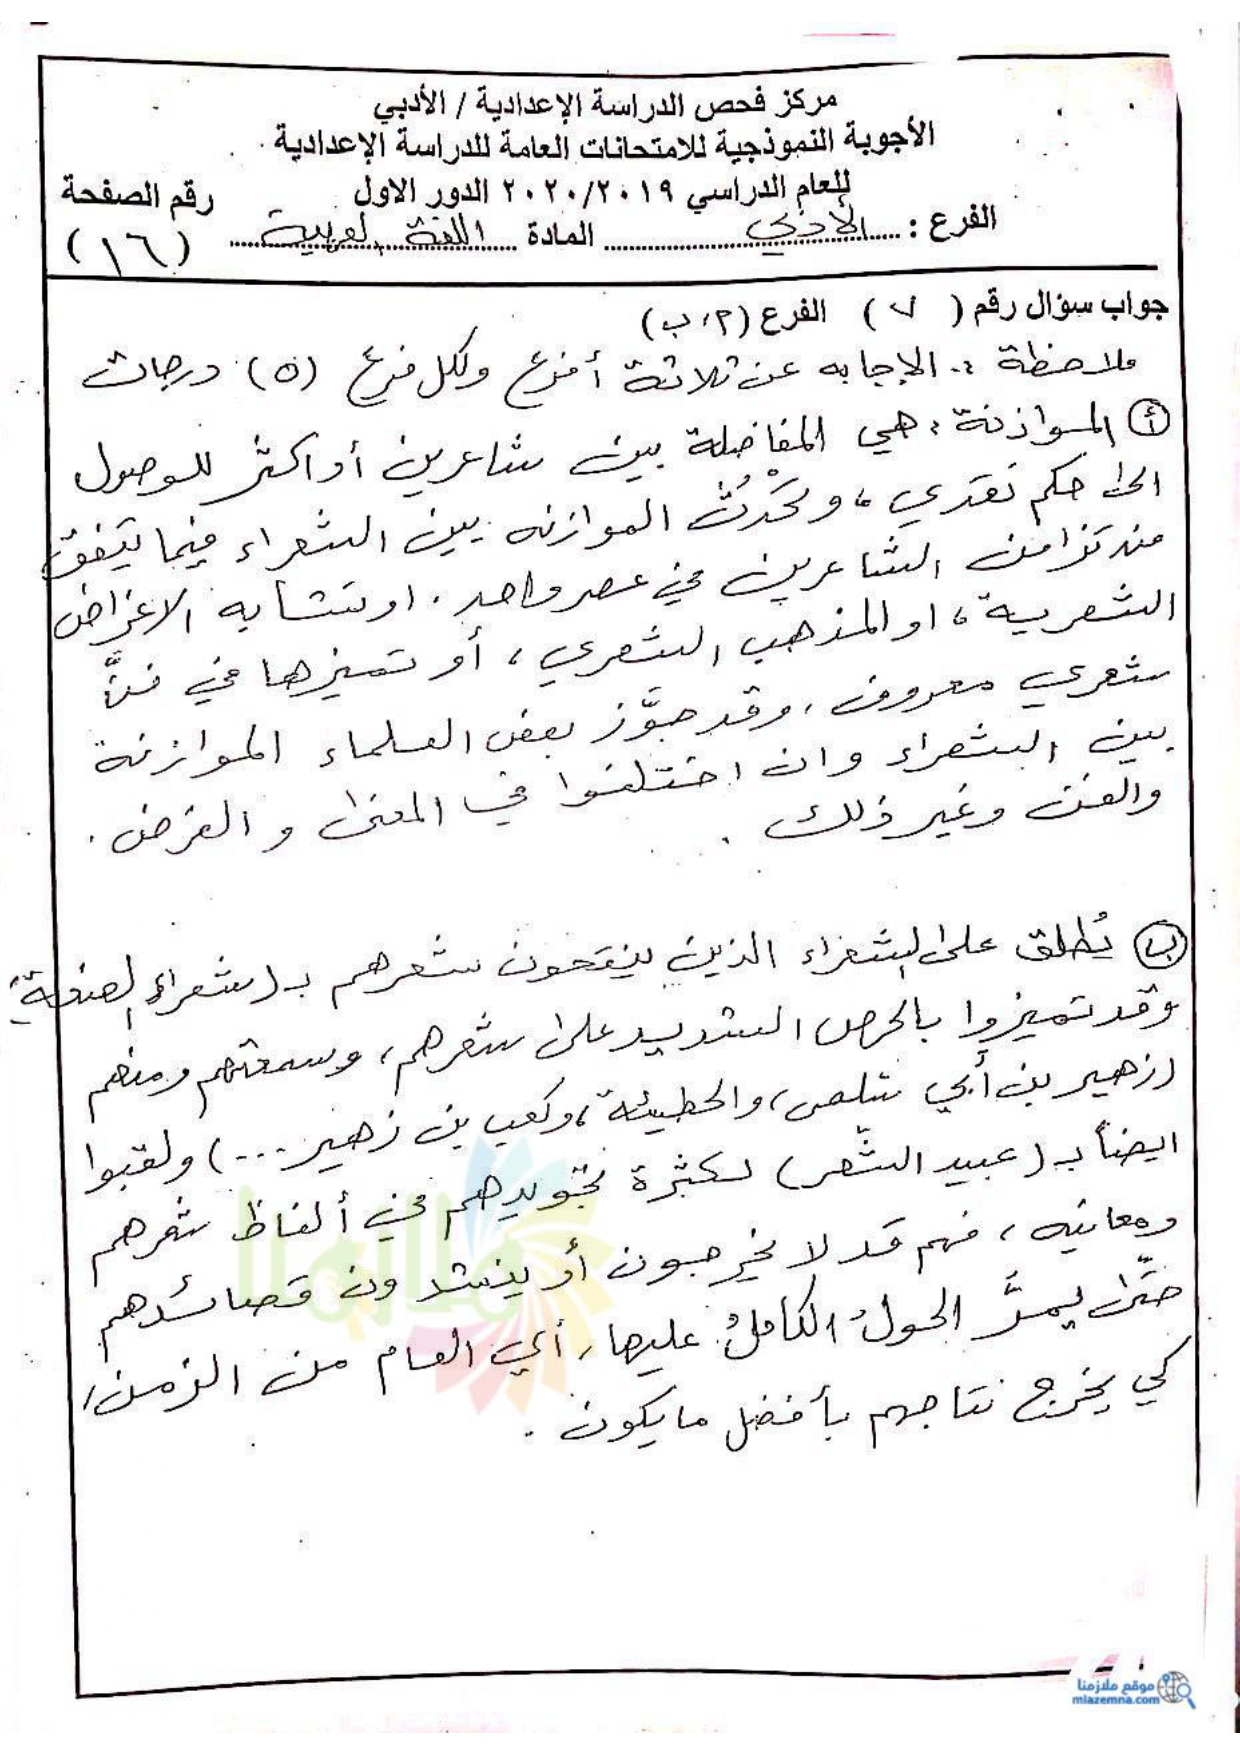 مركز فحص الدراسة الإعدادية / الأدبي
الأجوبة النموذجية للامتحانات العامة للدراسة الإعدادية
للعام الدراسي ٢٠٢٠/٢٠١٩ الدور الاول
رقم الصفحة
الفرع : الأدبي المادة اللغة العربية (١٦)
جواب سؤال رقم ( ٧ ) الفرع (أ، ب)
ملاحظة :. الإجابه عن ثلاثة أفرع ولكل فرع (٥) درجات
أ الموازنة : هي المفاضلة بين شاعرين أو اكثر للوصول
الى حكم نقدي ، وتَحْدُثُ الموازنه بين الشعراء فيما يتفق
من تزامن الشاعرين في عصر واحد . او تشابه الاغراض
الشعرية ، او المذهب الشعري ، أو تميزها في فنٍّ
شعري معروف ، وقد جوَّز بعض العلماء الموازنة
بين الشعراء وان اختلفوا في المعنى و الغرض .
والفن وغير ذلك .
ب يُطلق على الشعراء الذين ينقحون شعرهم بـ (شعراء الصنعة)
وقد تميزوا بالحرص الشديد على شعرهم ، وسمعتهم ومنهم
(زهير بن أبي سلمى ، والحطيئة ، وكعب بن زهير ...) ولقبوا
ايضاً بـ (عبيد الشّعر) لكثرة تجويدهم في ألفاظ شعرهم
ومعانيه ، فهم قد لا يخرجون أو ينشدون قصائدهم
حتّى يمرَّ الحولُ الكاملُ عليها ، أي العام من الزمن ،
كي يخرج نتاجهم بأفضل ما يكون .
ملازمنا
موقع ملازمنا
mlazemna.com